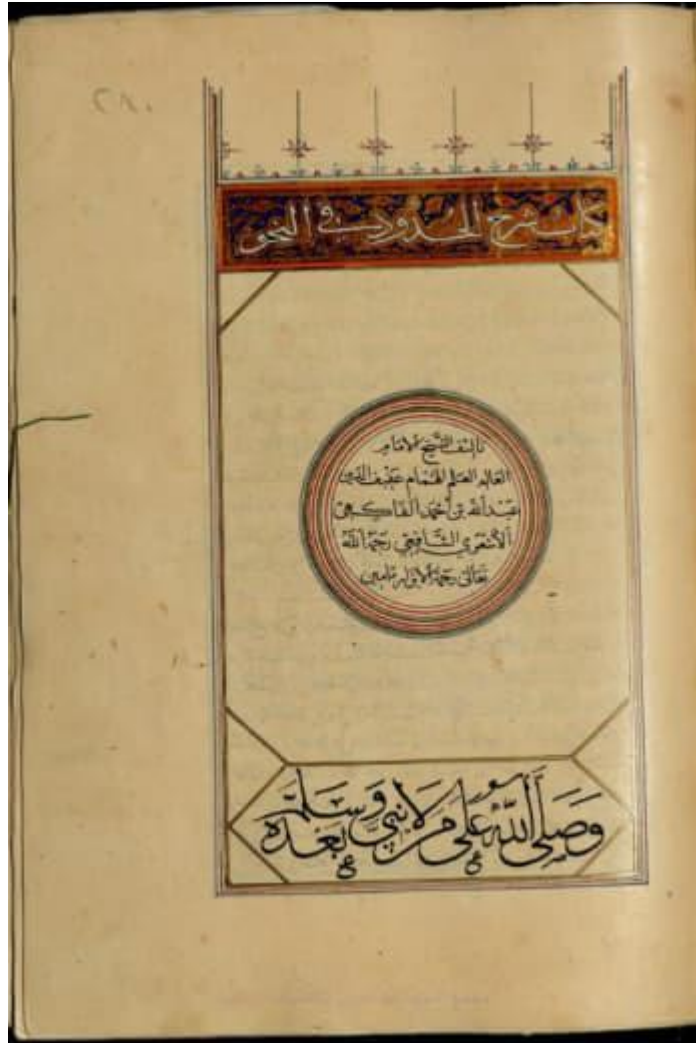 ٢٨٠
كتاب شرح الحدود في النحو
تاليف الشيخ الامام
العالم العلم الهمام عفيف الدين
عبد الله بن أحمد الفاكهي
الأشعري الشافعي رحمه الله
تعالى رحمة الابرار امين
وَصَلَّى اللهُ عَلَى مَن لَا نَبِيَّ وَسَلَّمَ بَعْدَهُ